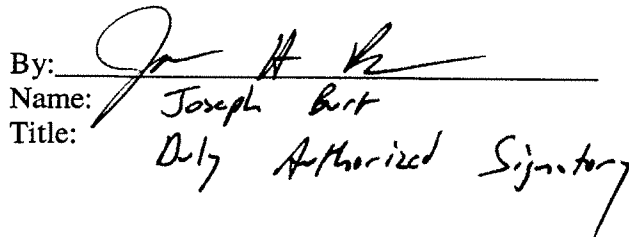 By:
Name: Joseph Burt
Title: Duly Authorized Signatory